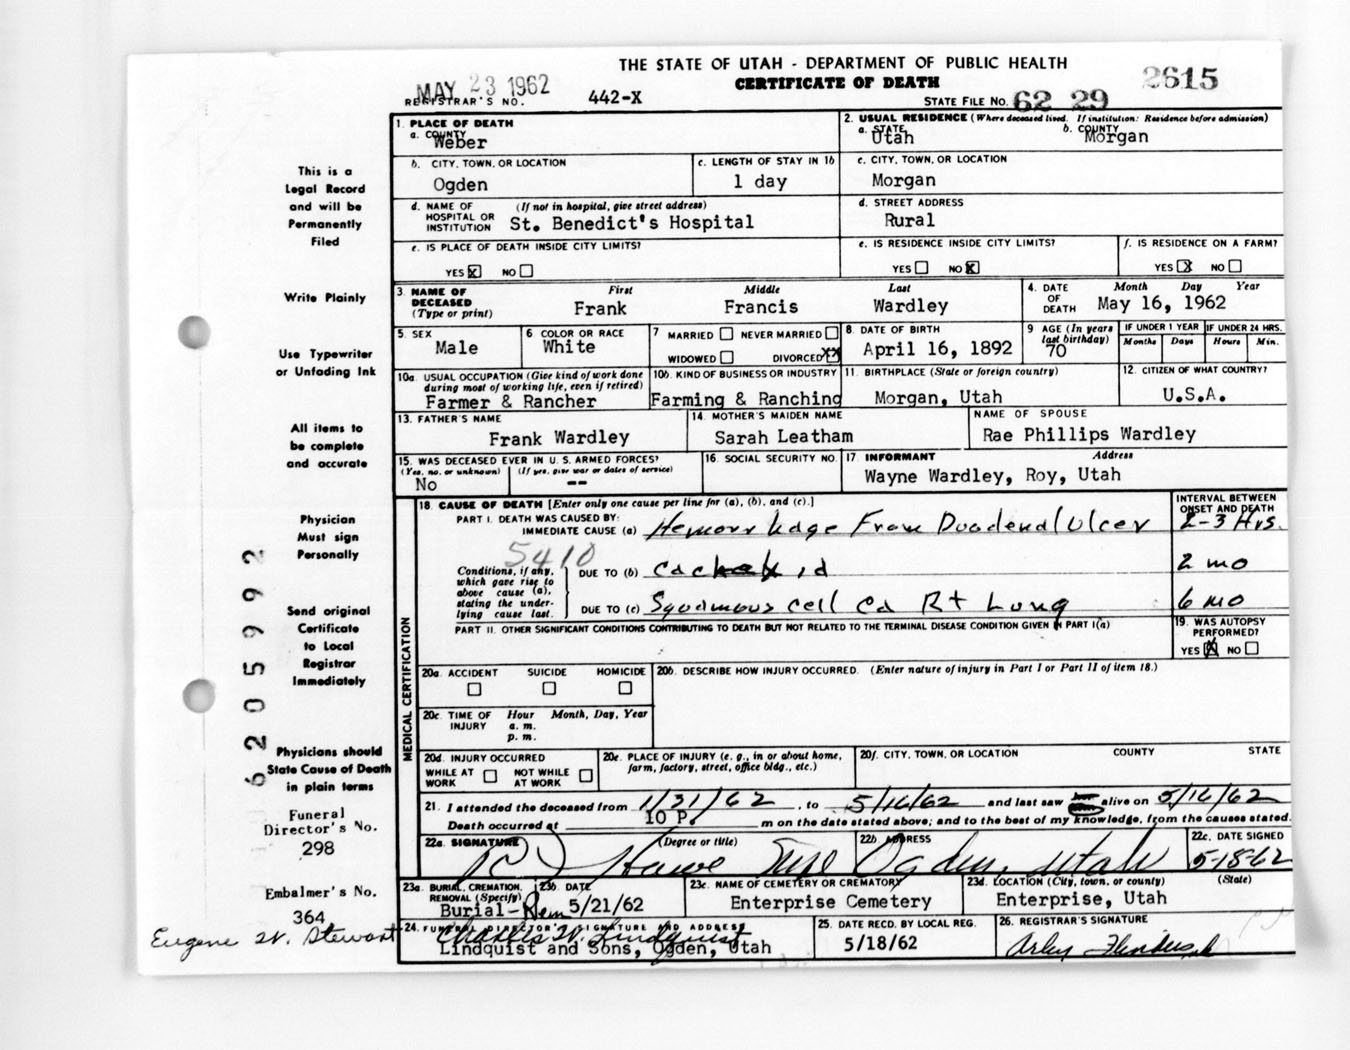 THE STATE OF UTAH - DEPARTMENT OF PUBLIC HEALTH
CERTIFICATE OF DEATH
2615
MAY 23 1962
REGISTRAR'S NO. 442-X
STATE FILE NO. 62 29
This is a
Legal Record
and will be
Permanently
Filed
Write Plainly
Use Typewriter
or Unfading Ink
All items to
be complete
and accurate
Physician
Must sign
Personally
Send original
Certificate
to Local
Registrar
Immediately
Physicians should
State Cause of Death
in plain terms
Funeral
Director's No.
298
Embalmer's No.
364
Eugene W. Stewart
6205992
1. PLACE OF DEATH
a. COUNTY
Weber
2. USUAL RESIDENCE (Where deceased lived. If institution: Residence before admission)
a. STATE b. COUNTY
Utah Morgan
b. CITY, TOWN, OR LOCATION
Ogden
c. LENGTH OF STAY IN 1b
1 day
c. CITY, TOWN, OR LOCATION
Morgan
d. NAME OF (If not in hospital, give street address)
HOSPITAL OR
INSTITUTION St. Benedict's Hospital
d. STREET ADDRESS
Rural
e. IS PLACE OF DEATH INSIDE CITY LIMITS?
YES X NO
e. IS RESIDENCE INSIDE CITY LIMITS?
YES NO X
f. IS RESIDENCE ON A FARM?
YES X NO
3. NAME OF First Middle Last
DECEASED
(Type or print) Frank Francis Wardley
4. DATE Month Day Year
OF
DEATH May 16, 1962
5. SEX
Male
6 COLOR OR RACE
White
7 MARRIED NEVER MARRIED
WIDOWED DIVORCED XX
8. DATE OF BIRTH
April 16, 1892
9 AGE (In years
last birthday)
70
IF UNDER 1 YEAR IF UNDER 24 HRS.
Months Days Hours Min.
10a. USUAL OCCUPATION (Give kind of work done
during most of working life, even if retired)
Farmer & Rancher
10b. KIND OF BUSINESS OR INDUSTRY
Farming & Ranching
11. BIRTHPLACE (State or foreign country)
Morgan, Utah
12. CITIZEN OF WHAT COUNTRY?
U.S.A.
13. FATHER'S NAME
Frank Wardley
14. MOTHER'S MAIDEN NAME
Sarah Leatham
NAME OF SPOUSE
Rae Phillips Wardley
15. WAS DECEASED EVER IN U. S. ARMED FORCES?
(Yes, no. or unknown) (If yes, give war or dates of service)
No --
16. SOCIAL SECURITY NO.
17. INFORMANT Address
Wayne Wardley, Roy, Utah
MEDICAL CERTIFICATION
18. CAUSE OF DEATH [Enter only one cause per line for (a), (b), and (c).]
INTERVAL BETWEEN
ONSET AND DEATH
PART I. DEATH WAS CAUSED BY:
IMMEDIATE CAUSE (a) Hemorrhage From Duodenal Ulcer 2-3 Hrs.
5410
Conditions, if any,
which gave rise to
above cause (a),
stating the under-
lying cause last.
DUE TO (b) 2 mo
DUE TO (c) Squamous cell Ca Rt Lung 6 mo
PART II. OTHER SIGNIFICANT CONDITIONS CONTRIBUTING TO DEATH BUT NOT RELATED TO THE TERMINAL DISEASE CONDITION GIVEN IN PART I(a)
19. WAS AUTOPSY
PERFORMED?
YES X NO
20a. ACCIDENT SUICIDE HOMICIDE
20b. DESCRIBE HOW INJURY OCCURRED. (Enter nature of injury in Part I or Part II of item 18.)
20c. TIME OF Hour Month, Day, Year
INJURY a. m.
p. m.
20d. INJURY OCCURRED
WHILE AT NOT WHILE
WORK AT WORK
20e. PLACE OF INJURY (e. g., in or about home,
farm, factory, street, office bldg., etc.)
20f. CITY, TOWN, OR LOCATION COUNTY STATE
21. I attended the deceased from 1/31/62, to 5/16/62 and last saw alive on 5/16/62
Death occurred at 10 P. m on the date stated above; and to the best of my knowledge, from the causes stated.
22a. SIGNATURE (Degree or title)
22b. ADDRESS
Ogden, Utah
22c. DATE SIGNED
5-18-62
23a. BURIAL, CREMATION,
REMOVAL (Specify)
Burial-Rem
23b. DATE
5/21/62
23c. NAME OF CEMETERY OR CREMATORY
Enterprise Cemetery
23d. LOCATION (City, town, or county) (State)
Enterprise, Utah
24. FUNERAL DIRECTOR'S SIGNATURE AND ADDRESS
Charles W. Lindquist
Lindquist and Sons, Ogden, Utah
25. DATE RECD. BY LOCAL REG.
5/18/62
26. REGISTRAR'S SIGNATURE